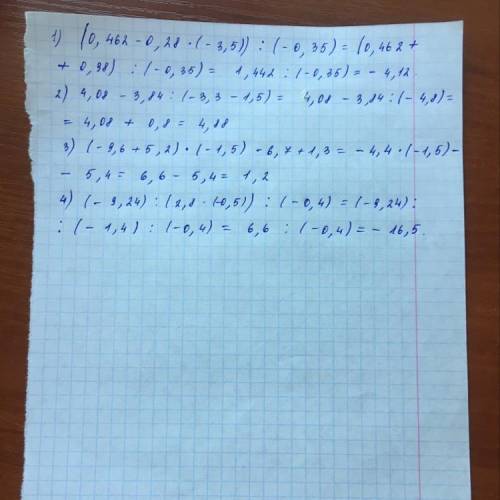 1) (0,462-0,28·(-3,5)) : (-0,35) = (0,462 +
+ 0,98) : (-0,35) = 1,442 : (-0,35) = - 4,12.
2) 4,08 - 3,84 : (-3,3 - 1,5) = 4,08 - 3,84 : (- 4,8) =
= 4,08 + 0,8 = 4,88
3) (-9,6 + 5,2) · (-1,5) - 6,7 + 1,3 = - 4,4 · (-1,5) -
- 5,4 = 6,6 - 5,4 = 1,2
4) (- 9,24) : (2,8 · (-0,5)) : (-0,4) = (-9,24) :
: (- 1,4) : (-0,4) = 6,6 : (-0,4) = - 16,5.